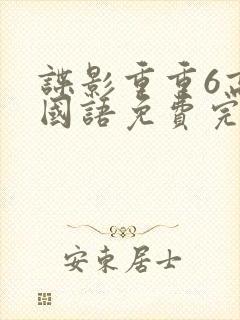 諜影重重6高
國語免費完
安東居士